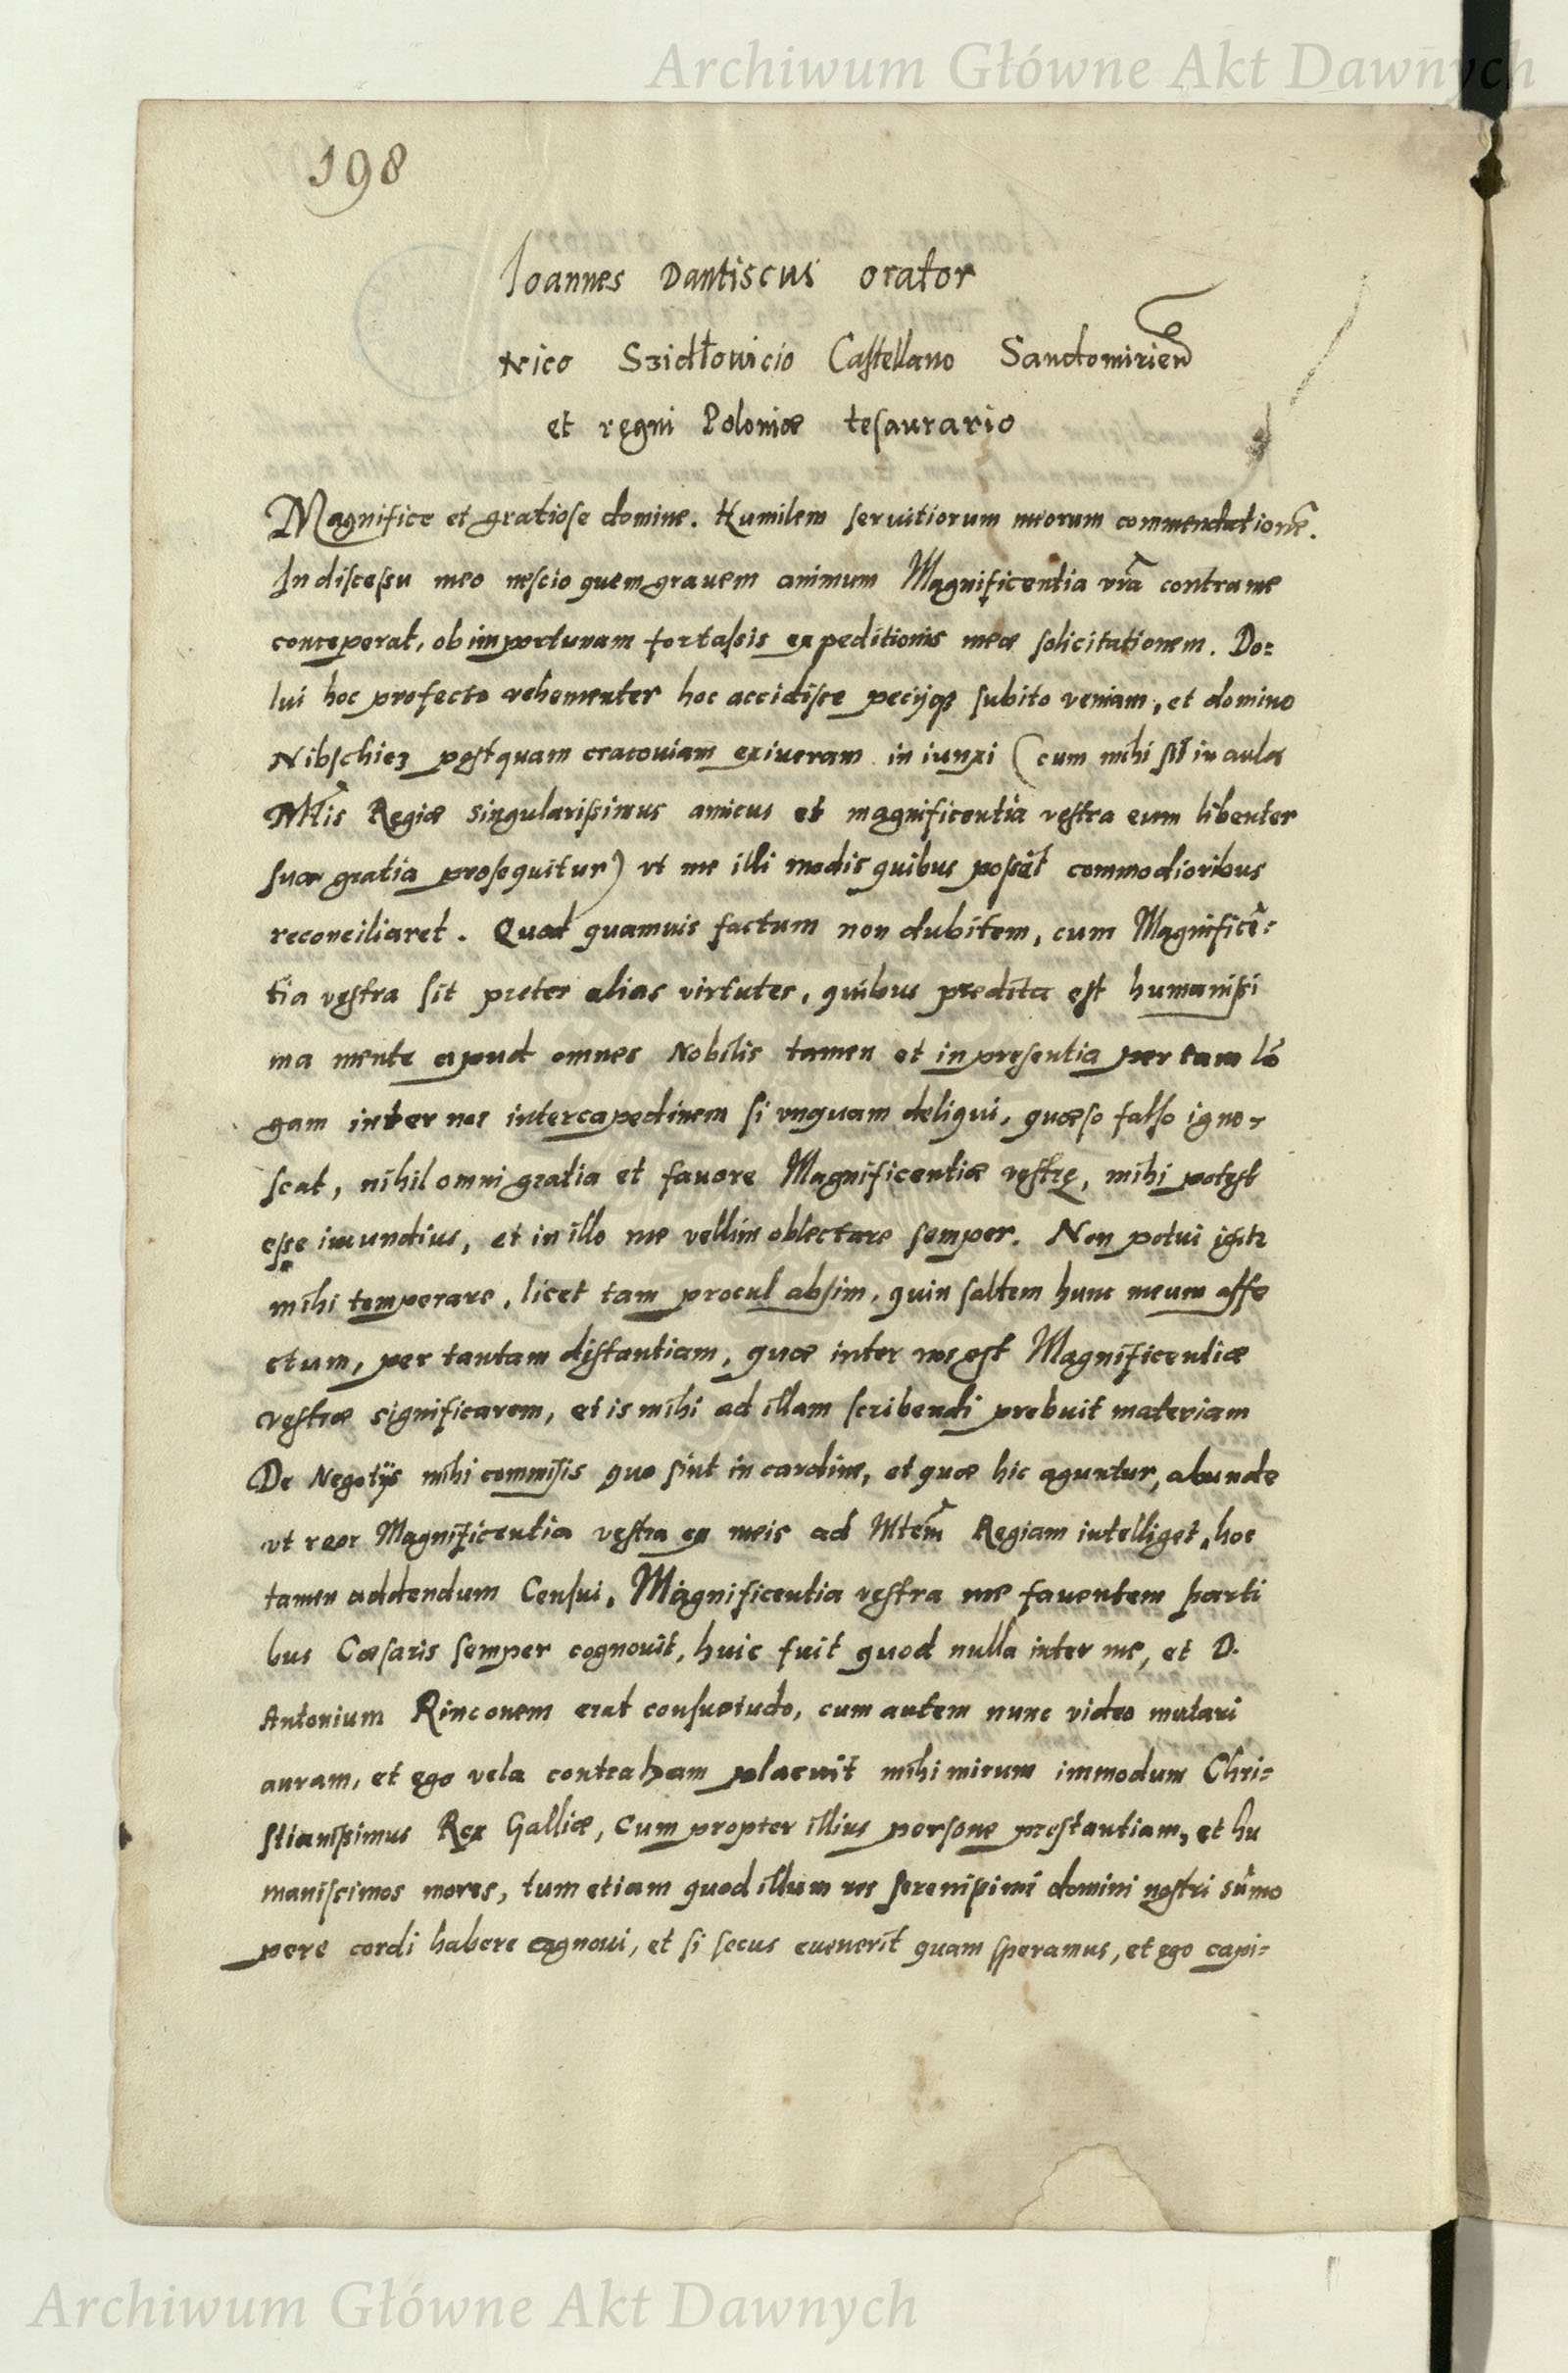 Archiwum Główne Akt Dawnych
198
Ioannes Dantiscus orator
Nico Szidłouicio Castellano Sandomirien
et regni Poloniæ tesaurario
Magnifice et gratiose domine. Humilem seruitiorum meorum commendationē.
In discessu meo nescio quem grauem animum Magnificentia vrā contra me
conceperat, ob importunam fortassis expeditionis meæ solicitationem. Do=
lui hoc profecto vehementer hoc accidisse pecijqꝫ subito veniam, et domino
Nibschicz postquam cracouiam exiueram in iunxi (cum mihi sit in aula
Mtis Regiæ singularissimus amicus et magnificentia vestra eum libenter
sua gratia prosequitur) vt me illi modis quibus possit commodioribus
reconciliaret. Quod quamuis factum non dubitem, cum Magnificē=
tia vestra sit preter alias virtutes, quibus predita est humanissi
ma mente apud omnes Nobilis tamen et in presentia per tam lō
gam inter nos intercapedinem si vnquam deliqui, quæso falso igno-
scat, nihil omni gratia et fauore Magnificentiæ vestrę, mihi potest
esse iucundius, et in illo me vellim oblectare semper. Non potui igitr
mihi temperare, licet tam procul absim, quin saltem hunc meum affe
ctum, per tantam distantiam, quæ inter nos est Magnificentiæ
vestræ significarem, et is mihi ad illam scribendi prebuit materiam
De Negotijs mihi commissis quo sint in cardine, et quæ hic aguntur, abunde
vt reor Magnificentia vestra ex meis ad Mtem̄ Regiam intelliget, hoc
tamen addendum Censui, Magnificentia vestra me fauentem parti
bus Cæsaris semper cognouit, huic fuit quod nulla inter me, et D.
Antonium Rinconem erat consuetudo, cum autem nunc video mutari
auram, et ego vela contraham placuit mihi mirum immodum Chri=
stianissimus Rex Galliæ, Cum propter illius persone prestantiam, et hu
manissimos mores, tum etiam quod illum res serenissimi domini nostri sūmo
pere cordi habere cognoui, et si secus euenerit quam speramus, et ego capi=
Archiwum Główne Akt Dawnych